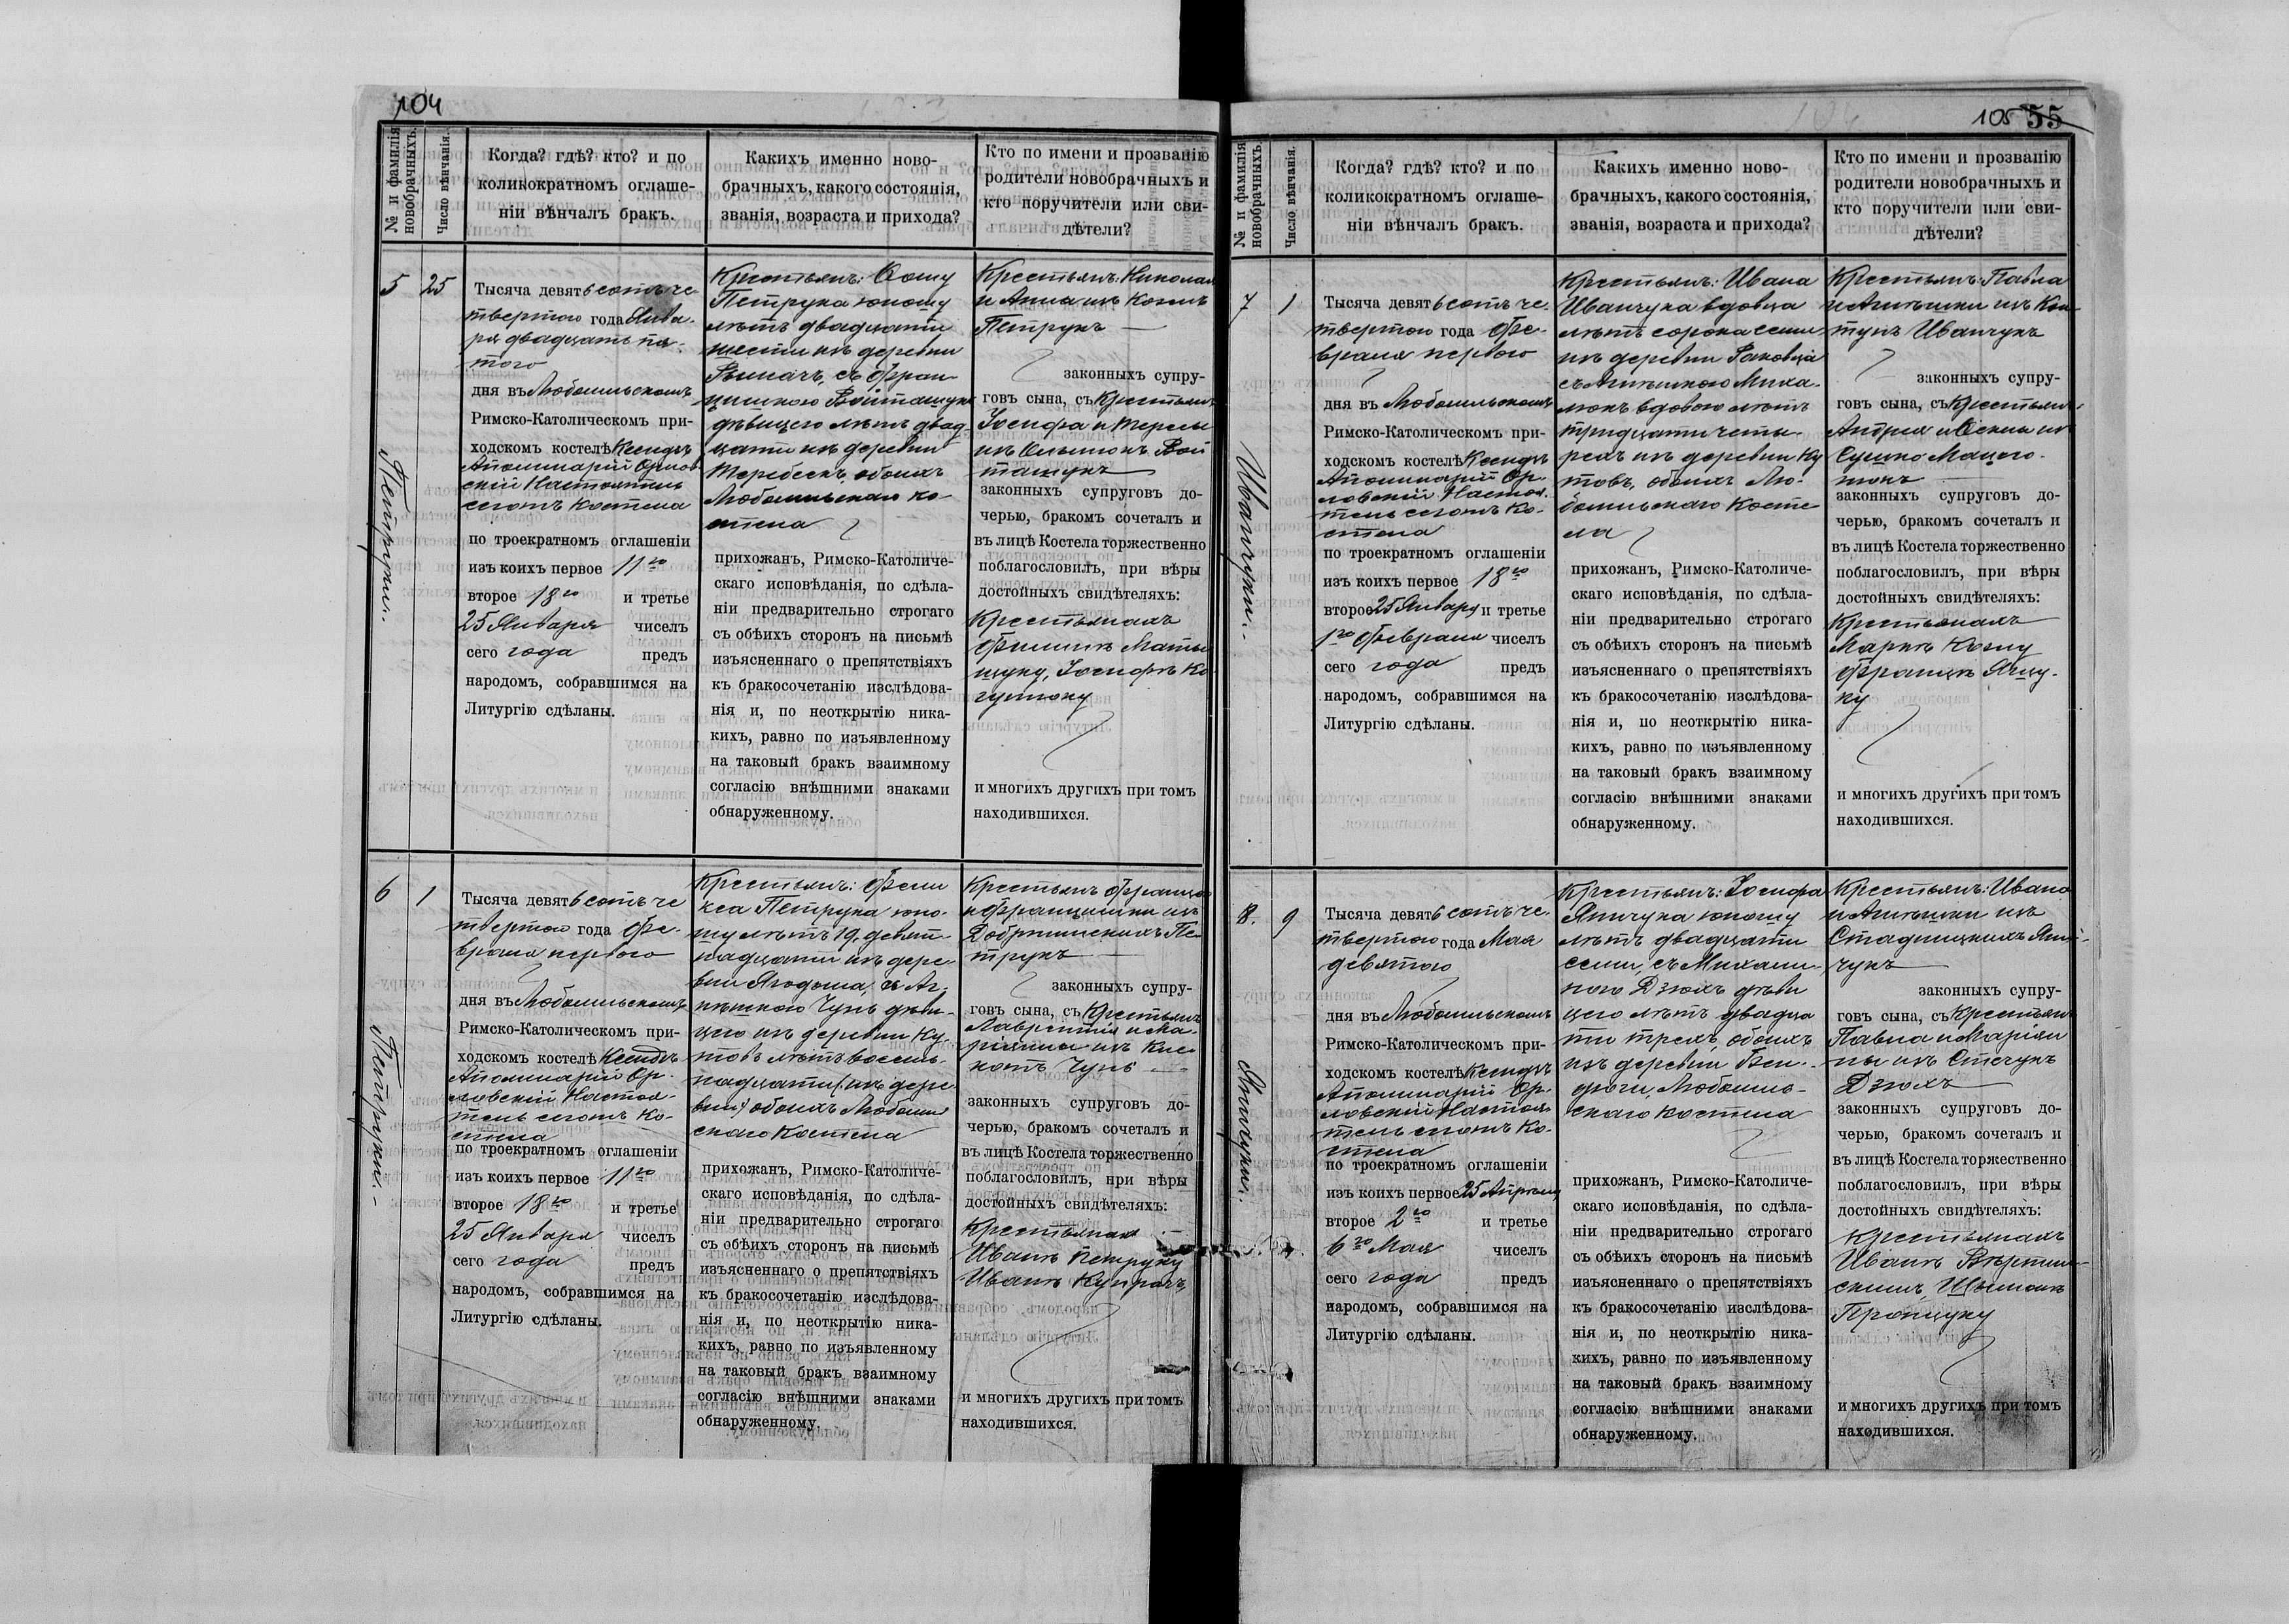 104
№ и фамилія
новобрачныхъ.
Число вѣнчанія.
Когда? гдѣ? кто? и по
коликократномъ оглаше-
ніи вѣнчалъ бракъ.
Какихъ именно ново-
брачныхъ, какого состоянія,
званія, возраста и прихода?
Кто по имени и прозванію
родители новобрачныхъ и
кто поручители или сви-
дѣтели?
5
Петруки.
25
Тысяча девятьсотъ че
твертого года Янва-
ря двадцать пя-
того
дня въ Любомльскомъ
Римско-Католическомъ при-
ходскомъ костелѣ Ксендзъ
Аполинарій Орлов
скій Настоятель
сего костела
по троекратномъ оглашеніи
изъ коихъ первое 11го
второе 18го и третье
25 Января чиселъ
сего года предъ
народомъ, собравшимся на
Литургію сдѣланы.
Крестьянъ: Ѳому
Петрука юношу
лѣтъ двадцати
шести изъ деревни
Рымачъ, съ Фран
цишкою Войташукъ
дѣвицею лѣтъ двад-
цати изъ деревни
Теребеекъ, обоихъ
Любомльскаго ко-
стела
прихожанъ, Римско-Католиче-
скаго исповѣданія, по сдѣла-
ніи предварительно строгаго
съ обѣихъ сторонъ на письмѣ
изъясненнаго о препятствіяхъ
къ бракосочетанію изслѣдова-
нія и, по неоткрытію ника-
кихъ, равно по изъявленному
на таковый бракъ взаимному
согласію внѣшними знаками
обнаруженному.
Крестьянъ: Николая
и Анны изъ
Петрукъ
законныхъ супру-
говъ сына, съ Крестьянъ
Іосифа и Терезы
изъ Вой
ташукъ
законныхъ супруговъ до-
черью, бракомъ сочеталъ и
въ лицѣ Костела торжественно
поблагословилъ, при вѣры
достойныхъ свидѣтеляхъ:
Крестьянахъ
Филиппѣ Маты
щуку, Іосифѣ Ко

и многихъ другихъ при томъ
находившихся.
6
Петруки.
1
Тысяча девятьсотъ че
твертого года Фе-
враля первого
дня въ Любомльскомъ
Римско-Католическомъ при-
ходскомъ костелѣ Ксендзъ
Аполинарій Ор-
ловскій Настоя-
тель сего Ко-
стела
по троекратномъ оглашеніи
изъ коихъ первое 11го
второе 18го и третье
25 Января чиселъ
сего года предъ
народомъ, собравшимся на
Литургію сдѣланы.
Крестьянъ: Фели
кса Петрука юно-
шу лѣтъ 19, девят-
надцати изъ дере-
вни Ягодина, съ Аг-
нѣшкою Чунь дѣви-
цею изъ деревни Ку-
товъ лѣтъ восемь-
надцати (изъ дере
вни) обоихъ Любомль
скаго Костела
прихожанъ, Римско-Католиче-
скаго исповѣданія, по сдѣла-
ніи предварительно строгаго
съ обѣихъ сторонъ на письмѣ
изъясненнаго о препятствіяхъ
къ бракосочетанію изслѣдова-
нія и, по неоткрытію ника-
кихъ, равно по изъявленному
на таковый бракъ взаимному
согласію внѣшними знаками
обнаруженному.
Крестьянъ Франца
и Францишки изъ
Пе-
трукъ
законныхъ супру-
говъ сына, съ Крестьянъ
Лаврентія и Ма-
ріянны изъ
Чунь
законныхъ супруговъ до-
черью, бракомъ сочеталъ и
въ лицѣ Костела торжественно
поблагословилъ, при вѣры
достойныхъ свидѣтеляхъ:
Крестьянахъ
Иванѣ Петруку
Иванѣ
и многихъ другихъ при томъ
находившихся.
105 55
№ и фамилія
новобрачныхъ.
Число вѣнчанія.
Когда? гдѣ? кто? и по
коликократномъ оглаше-
ніи вѣнчалъ бракъ.
Какихъ именно ново-
брачныхъ, какого состоянія,
званія, возраста и прихода?
Кто по имени и прозванію
родители новобрачныхъ и
кто поручители или сви-
дѣтели?
7
Иванчуки.
1
Тысяча девятьсотъ че-
твертого года Фе-
враля первого
дня въ Любомльскомъ
Римско-Католическомъ при-
ходскомъ костелѣ Ксендзъ
Аполинарій Ор-
ловскій Настоя-
тель сего Ко-
стела
по троекратномъ оглашеніи
изъ коихъ первое 18го
второе 25 Января и третье
1го Февраля чиселъ
сего года предъ
народомъ, собравшимся на
Литургію сдѣланы.
Крестьянъ: Ивана
Иванчука вдовца
лѣтъ сорока семи
изъ деревни Раковца
съ Агнѣшкою Миха-
люкъ вдовою лѣтъ
тридцати четы-
рехъ изъ деревни Ку
товъ, обоихъ Лю-
бомльскаго Косте
ла
прихожанъ, Римско-Католиче-
скаго исповѣданія, по сдѣла-
ніи предварительно строгаго
съ обѣихъ сторонъ на письмѣ
изъясненнаго о препятствіяхъ
къ бракосочетанію изслѣдова-
нія и, по неоткрытію ника-
кихъ, равно по изъявленному
на таковый бракъ взаимному
согласію внѣшними знаками
обнаруженному.
Крестьянъ: Павла
и Агнѣшки изъ
Иванчукъ
законныхъ супру-
говъ сына, съ Крестьянъ
Андрея и изъ

законныхъ супруговъ до-
черью, бракомъ сочеталъ и
въ лицѣ Костела торжественно
поблагословилъ, при вѣры
достойныхъ свидѣтеляхъ:
Крестьянахъ
Маркѣ
Францѣ Ящу-
ку
и многихъ другихъ при томъ
находившихся.
8.
Янчуки.
9
Тысяча девятьсотъ че-
твертого года Мая
девятого
дня въ Любомльскомъ
Римско-Католическомъ при-
ходскомъ костелѣ Ксендзъ
Аполинарій Ор-
ловскій Настоя
тель сего Ко-
стела
по троекратномъ оглашеніи
изъ коихъ первое 25 Апрѣля
второе 2го и третье
6го Мая чиселъ
сего года предъ
народомъ, собравшимся на
Литургію сдѣланы.
Крестьянъ: Іосифа
Янчука юношу
лѣтъ двадцати
семи, съ Михали-
ною Дзюхъ дѣви
цею лѣтъ двадца
ти трехъ, обоихъ
изъ деревни
Любомль-
скаго Костела
прихожанъ, Римско-Католиче-
скаго исповѣданія, по сдѣла-
ніи предварительно строгаго
съ обѣихъ сторонъ на письмѣ
изъясненнаго о препятствіяхъ
къ бракосочетанію изслѣдова-
нія и, по неоткрытію ника-
кихъ, равно по изъявленному
на таковый бракъ взаимному
согласію внѣшними знаками
обнаруженному.
Крестьянъ: Ивана
и Агнѣшки изъ
Стадницкихъ Ян-
чукъ
законныхъ супру-
говъ сына, съ Крестьянъ
Павла и Маріян
ны изъ
Дзюхъ
законныхъ супруговъ до-
черью, бракомъ сочеталъ и
въ лицѣ Костела торжественно
поблагословилъ, при вѣры
достойныхъ свидѣтеляхъ:
Крестьянахъ
Иванѣ
Процуку
и многихъ другихъ при томъ
находившихся.